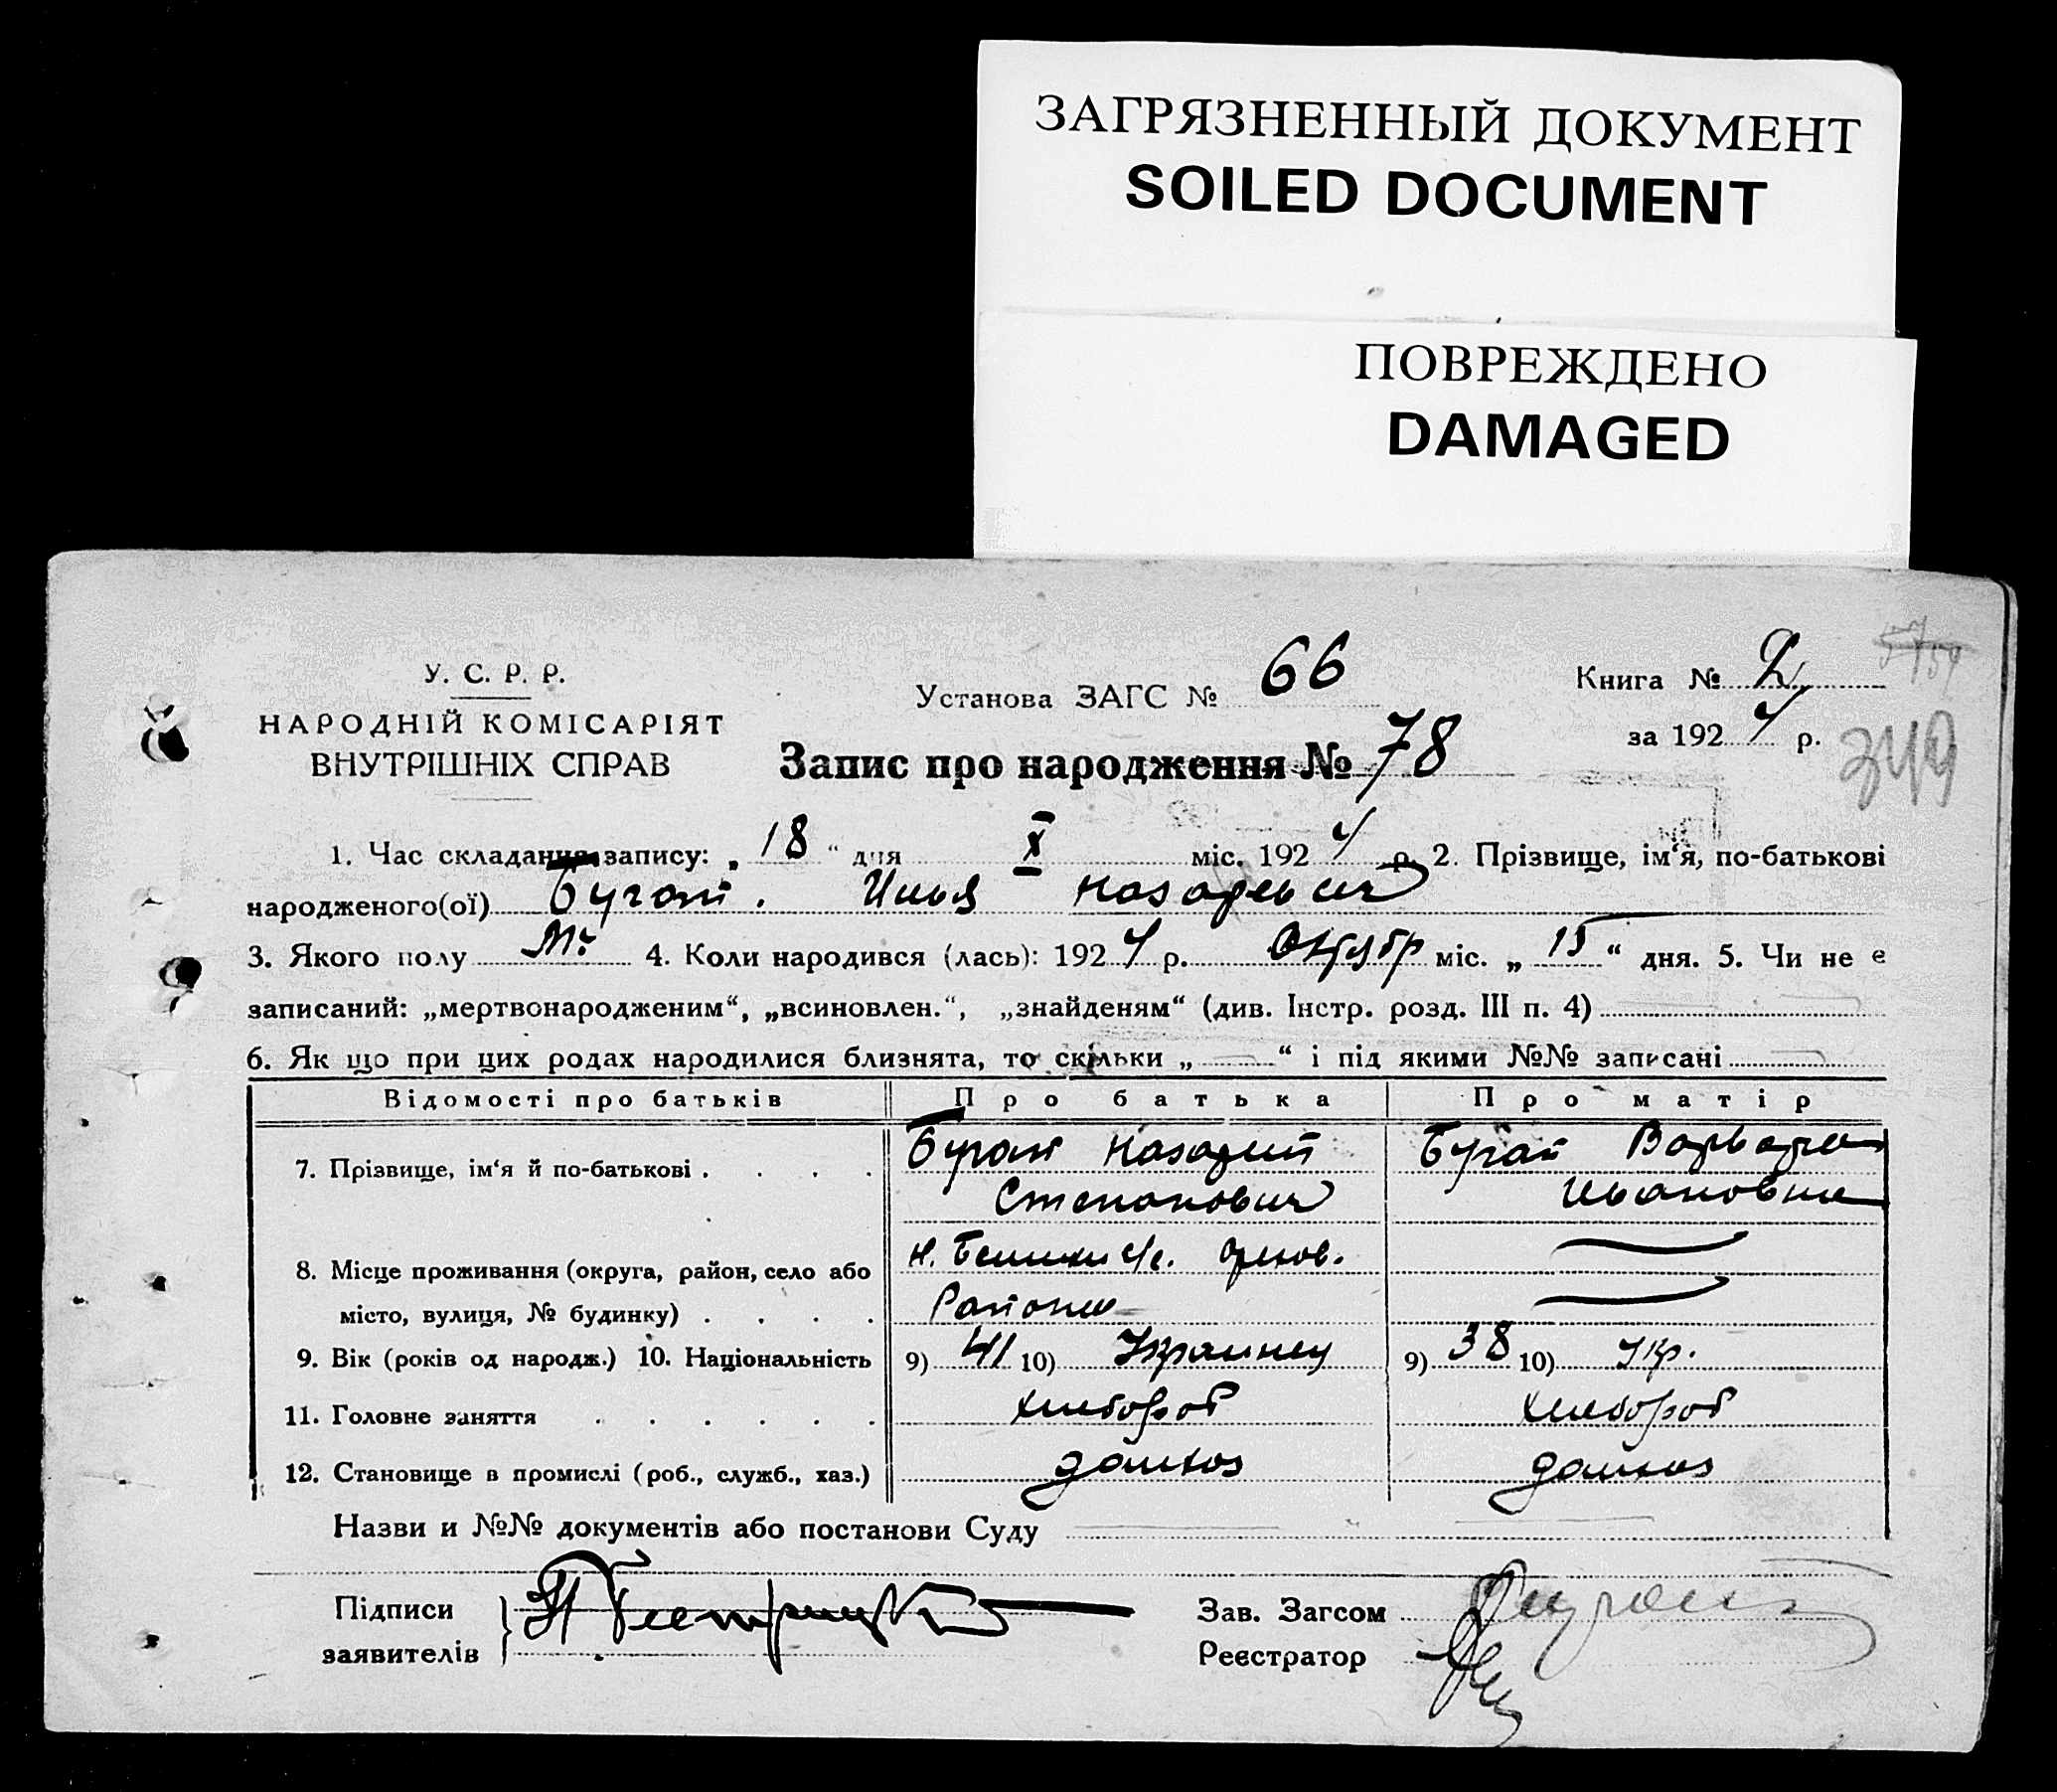 ЗАГРЯЗНЕННЫЙ ДОКУМЕНТ
SOILED DOCUMENT
ПОВРЕЖДЕНО
DAMAGED
У. С. Р. Р.
НАРОДНІЙ КОМІСАРІЯТ
ВНУТРІШНІХ СПРАВ
Установа ЗАГС № 66
Книга № 2
за 1924 р.
349
Запис про народження № 78
1. Час складання запису: „18“ дня X міс. 1924 р. 2. Прізвище, ім‘я, по-батькові
народженого(ої) Бугай. Илья Назарьевич
3. Якого полу М. 4. Коли народився (лась): 1924 р. Октябр міс. „15“ дня. 5. Чи не є
записаний: „мертвонародженим“, „всиновлен.“, „знайденям“ (див. Інстр. розд. III п. 4)
6. Як що при цих родах народилися близнята, то скільки „ “ і під якими №№ записані
Відомості про батьків Про батька Про матір
7. Прізвище, ім‘я й по-батькові . . . . Бугай Назарий Бугай Варвара
Степанович Ивановна
8. Місце проживання (округа, район, село або с/с. Орехов.
місто, вулиця, № будинку) . . . . Района
9. Вік (років од народж.) 10. Національність 9) 41 10) Украинец 9) 38 10) Укр.
11. Головне заняття . . . . . . хлебороб хлебороб
12. Становище в промислі (роб., служб., хаз.)
Назви и №№ документів або постанови Суду
Підписи
заявителів
Зав. Загсом
Реєстратор